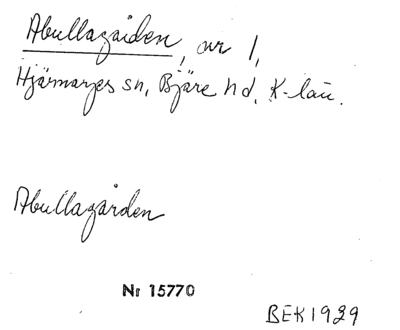 Abullagården, nr 1,
Hjärnarps sn, Bjäre hd, K-län.
Abullagården
Nr 15770
BEK1929